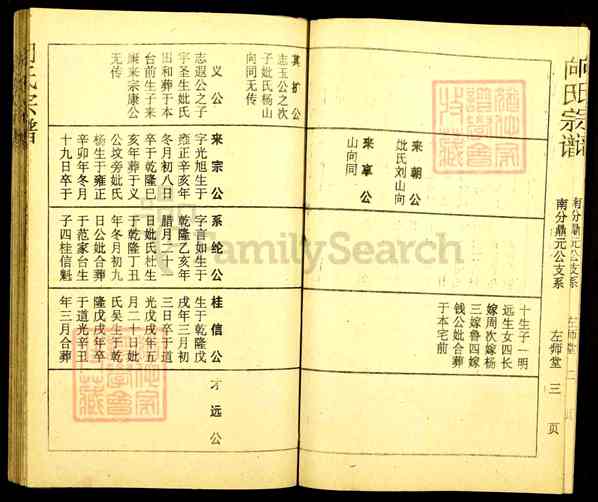 向氏宗谱
南分鼎元公支系
左师堂 二 页
南分鼎元公支系
左师堂 三 页
十生子一明
远生女四长
嫁周次嫁杨
三嫁鲁四嫁
钱公妣合葬
于本宅前
来朝公
妣氏刘山向
来享公
山向同
其扩公
志玉公之次
子妣氏杨山
向同无传
义公
志遐公之子
字圣生妣氏
田和葬于本
台前生子来
来宗康公
无传
来宗公
字光旭生于
雍正辛亥年
冬月初八日
卒于乾隆巳
亥年葬于义
公坟旁妣氏
杨生于雍正
辛卯年冬月
十九日卒于
系纶公
字言如生于
乾隆乙亥年
腊月二十一
日妣氏杜生
于乾隆丁丑
年冬月初九
日公妣合葬
于范家台生
子四桂信魁
桂信公
生于乾隆戊
戌年三月初
三日卒于道
光戊戌年五
月二十日妣
氏吴生于乾
隆戊戌年卒
于道光辛丑
年三月合葬
才远公
氏宗谱
FamilySearch